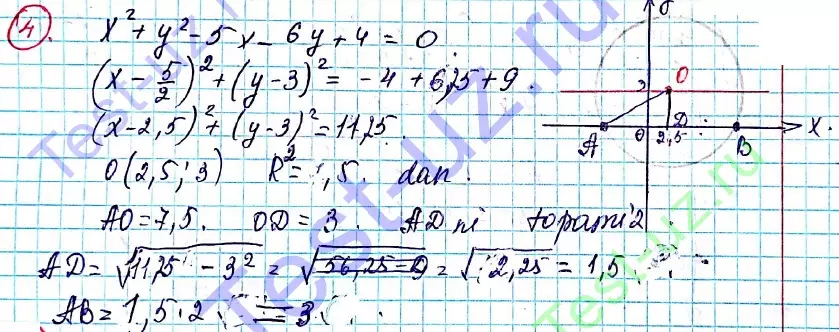 4. x² + y² - 5x - 6y + 4 = 0
(x - 5/2)² + (y - 3)² = -4 + 6,25 + 9.
(x - 2,5)² + (y - 3)² = 11,25.
O(2,5; 3) R² = ,5. dan.
AO = 7,5. OD = 3. AD ni topamiz.
AD = √(11,25 - 3²) = √(56,25 - 9) = √(2,25) = 1,5
AB = 1,5 · 2 = 3
O
A 0 D 2,5 B x
Test-uz.ru
Test-uz.ru
Test-uz.ru